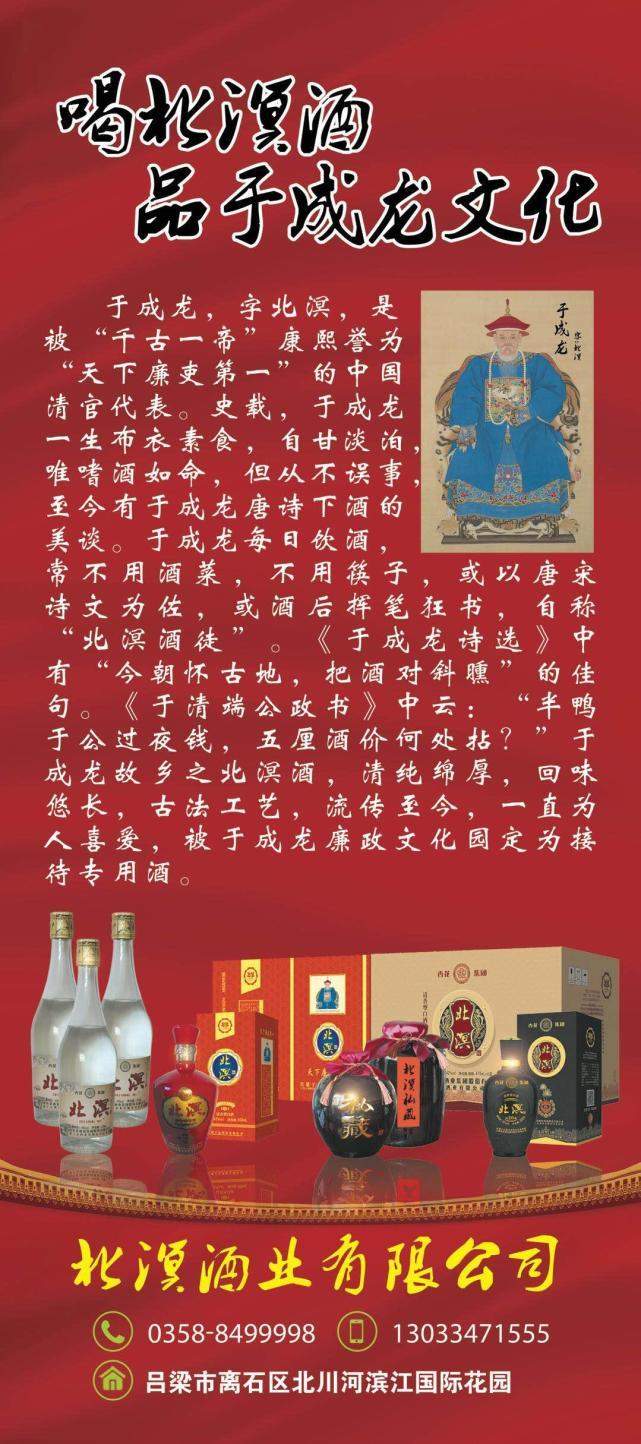 喝北溟酒
品于成龙文化
于成龙，字北溟，是
被“千古一帝”康熙誉为
“天下廉吏第一”的中国
清官代表。史载，于成龙
一生布衣素食，自甘淡泊，
唯嗜酒如命，但从不误事，
至今有于成龙唐诗下酒的
美谈。于成龙每日饮酒，
常不用酒菜，不用筷子，或以唐宋
诗文为佐，或酒后挥笔狂书，自称
“北溟酒徒”。《于成龙诗选》中
有“今朝怀古地，把酒对斜曛”的佳
句。《于清端公政书》中云：“半鸭
于公过夜钱，五厘酒价何处拈？”于
成龙故乡之北溟酒，清纯绵厚，回味
悠长，古法工艺，流传至今，一直为
人喜爱，被于成龙廉政文化园定为接
待专用酒。
于成龙
字北溟
杏花 集团
北溟
北溟
北溟
北溟
北溟
北溟
私藏
北溟私藏
北溟
北溟
北溟
北溟酒业有限公司
0358-8499998 13033471555
吕梁市离石区北川河滨江国际花园